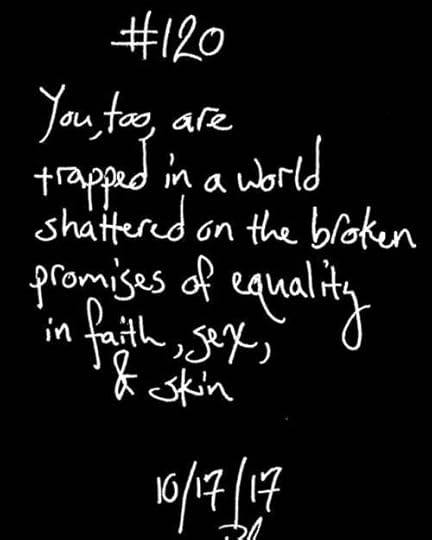 #120
You, too, are
trapped in a world
shattered on the broken
promises of equality
in faith, sex,
& skin
10/17/17